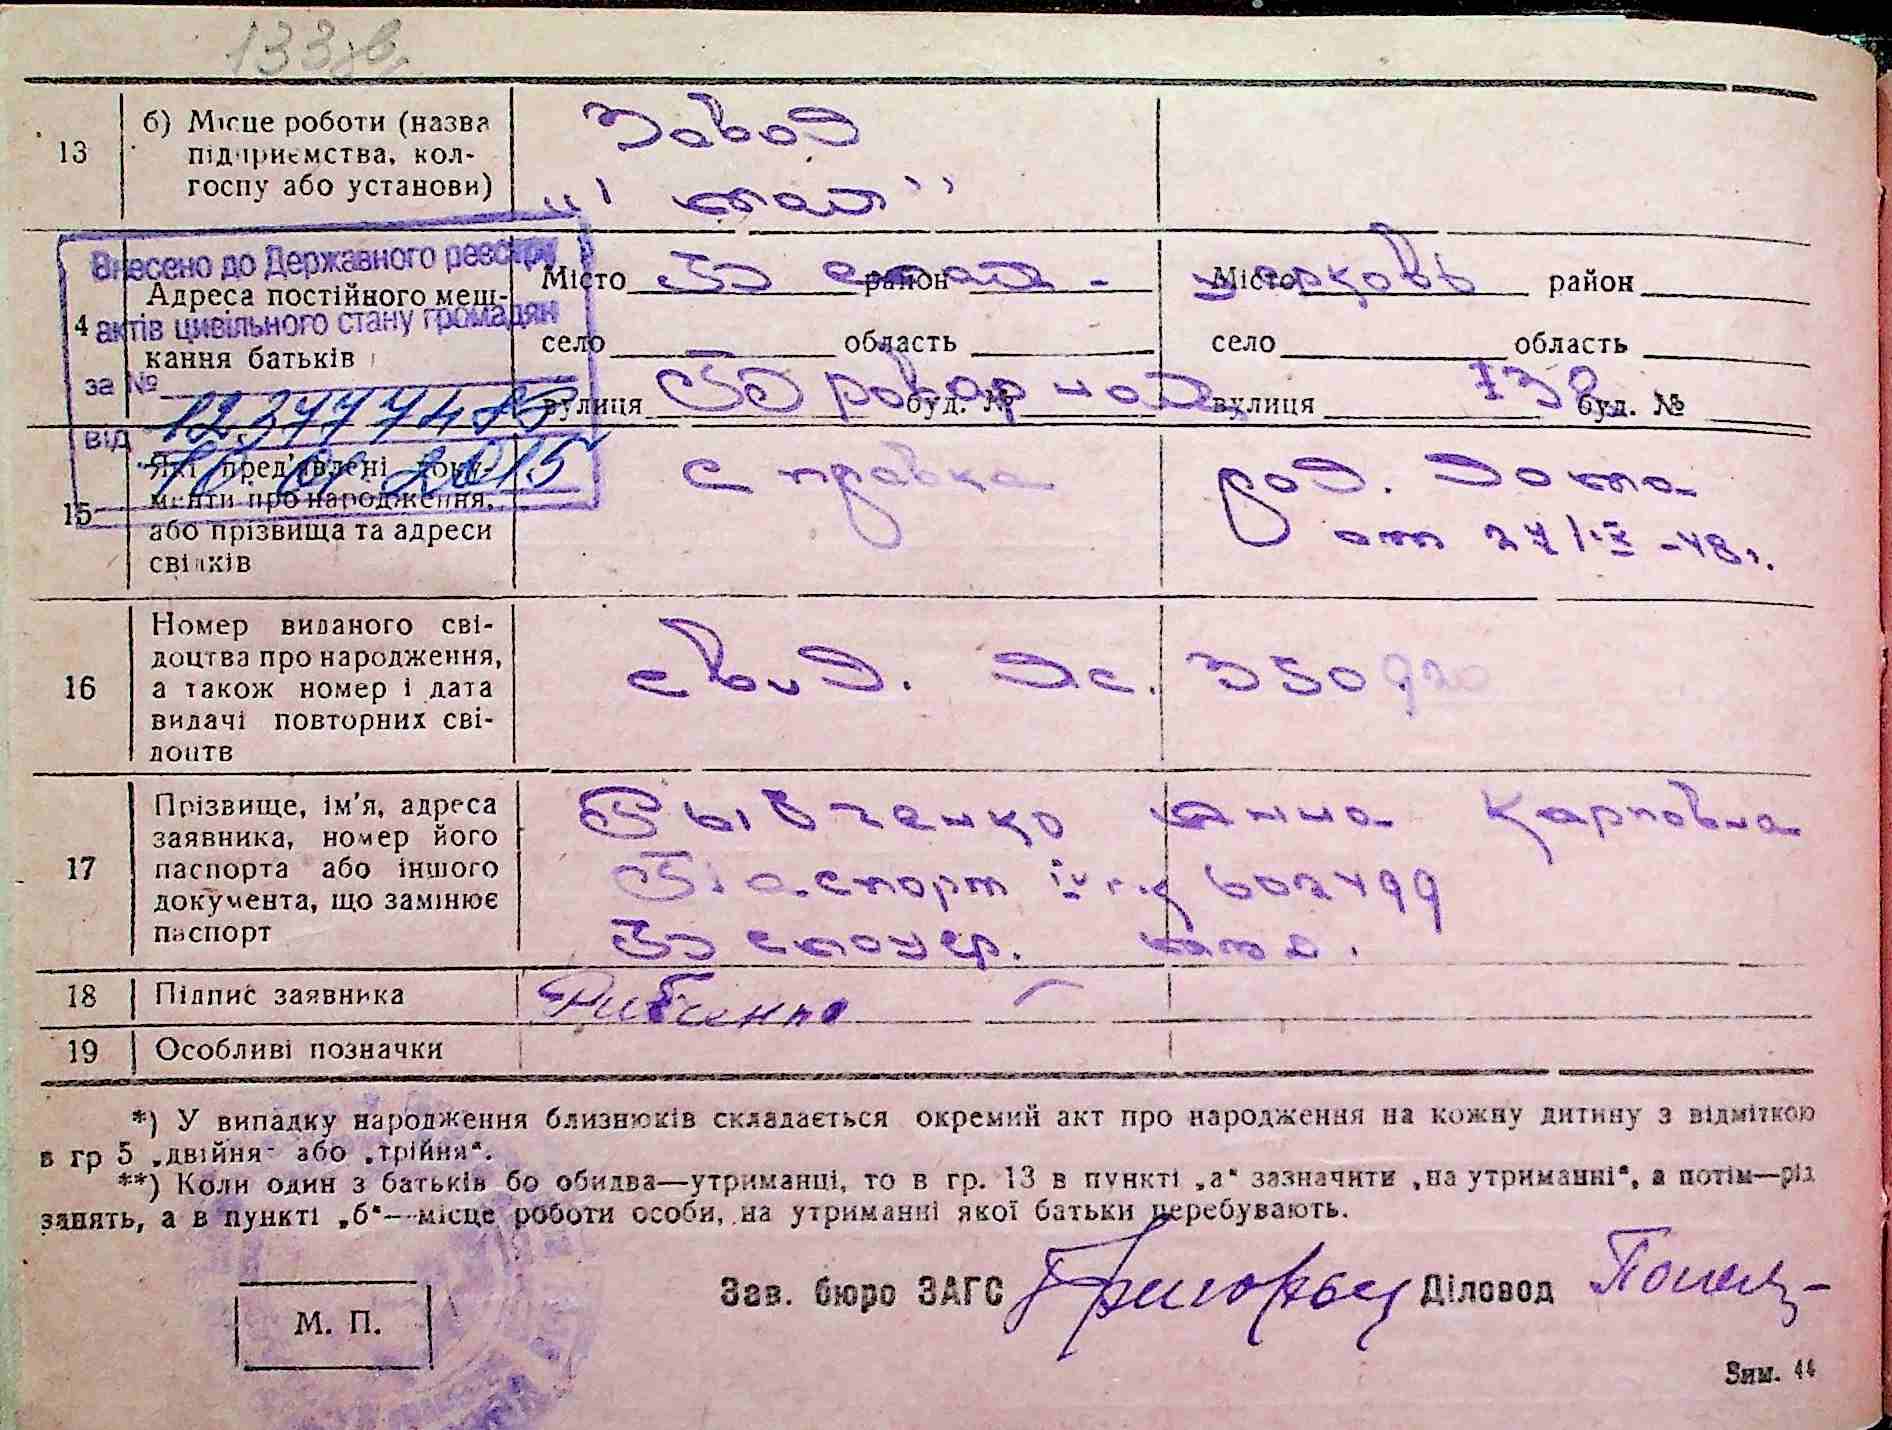 133зв.
13
б) Місце роботи (назва підприємства, колгоспу або установи)
Завод
"1 мая"
Внесено до Державного реєстру
актів цивільного стану громадян
за № 12377748
від 2015
14
Адреса постійного мешкання батьків
Місто район
село область
вулиця буд. №
Місто район
село область
вулиця буд. №
церковь
138
15
Які пред'явлені документи про народження, або прізвища та адреси свідків
справка
род. дома
от 27/IX-48г.
16
Номер виданого свідоцтва про народження, а також номер і дата видачі повторних свідоцтв
свид. 350920
17
Прізвище, ім'я, адреса заявника, номер його паспорта або іншого документа, що замінює паспорт
Рыбченко Анна Карповна
Паспорт 602499
18
Підпис заявника
Рибченко
19
Особливі позначки
*) У випадку народження близнюків складається окремий акт про народження на кожну дитину з відміткою
в гр 5 „двійня" або „трійня".
**) Коли один з батьків бо обидва—утриманці, то в гр. 13 в пункті „а" зазначити „на утриманні", а потім—рід
занять, а в пункті „б"—місце роботи особи, на утриманні якої батьки перебувають.
М. П.
Зав. бюро ЗАГС
Діловод
Зим. 44